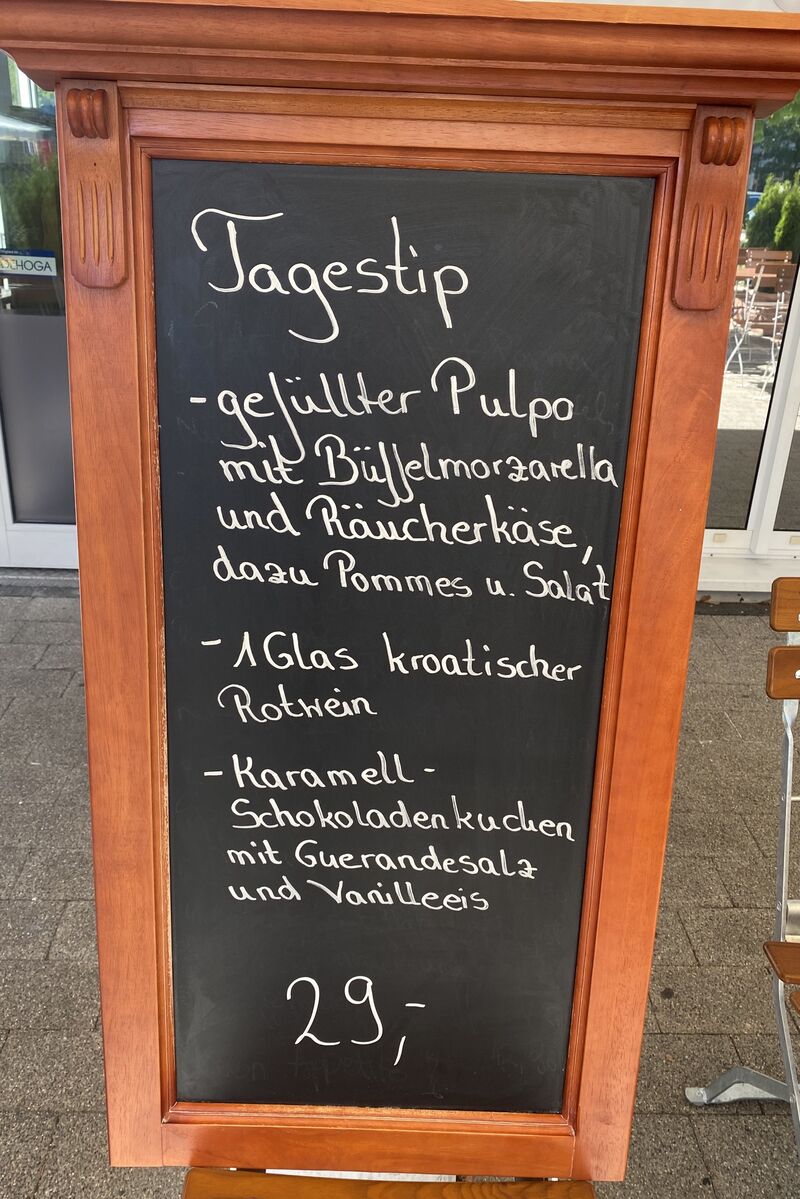 Tagestip
- gefüllter Pulpo
mit Büffelmorzarella
und Räucherkäse,
dazu Pommes u. Salat
- 1 Glas kroatischer
Rotwein
- Karamell-
Schokoladenkuchen
mit Guerandesalz
und Vanilleeis
29,-
DEHOGA